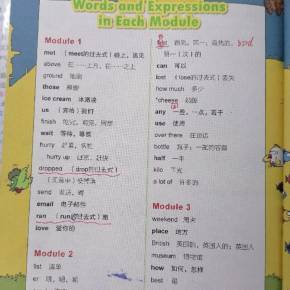 Words and Expressions
in Each Module
Module 1
met （meet的过去式）碰上，遇见
above 在……上方，在……之上
ground 地面
those 那些
ice cream 冰激凌
us （宾格）我们
finish 吃完，喝完，用完
wait 等待，等候
hurry 赶紧，匆忙
hurry up 赶紧，赶快
dropped （drop的过去式）
（无意中）使掉落
send 发送，寄
email 电子邮件
ran （run的过去式）跑
love 爱你的
Module 2
list 清单
first 首先，第一，最先的
can 可以
lost （lose的过去式）丢失
how much 多少
*cheese 奶酪
any 一些，一点，若干
use 使用
over there 在那边
bottle 瓶子；一瓶的容量
half 一半
kilo 千克
a lot of 许多的
Module 3
weekend 周末
place 地方
British 英国的，英国人的；英国人
museum 博物馆
how 如何，怎样
best 最